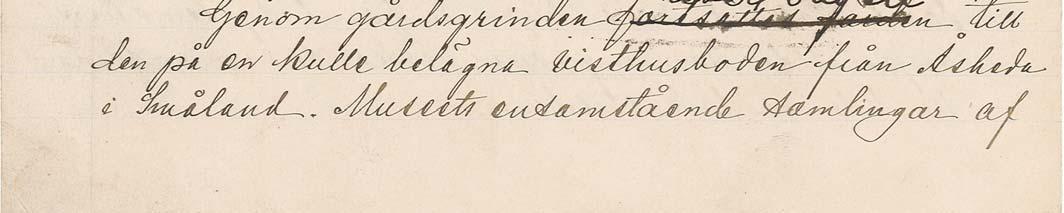 Genom gårdsgrinden fortsattes färden till
den på en kulle belägna visthusboden från Åsheda
i Småland. Museets ensamstående samlingar af